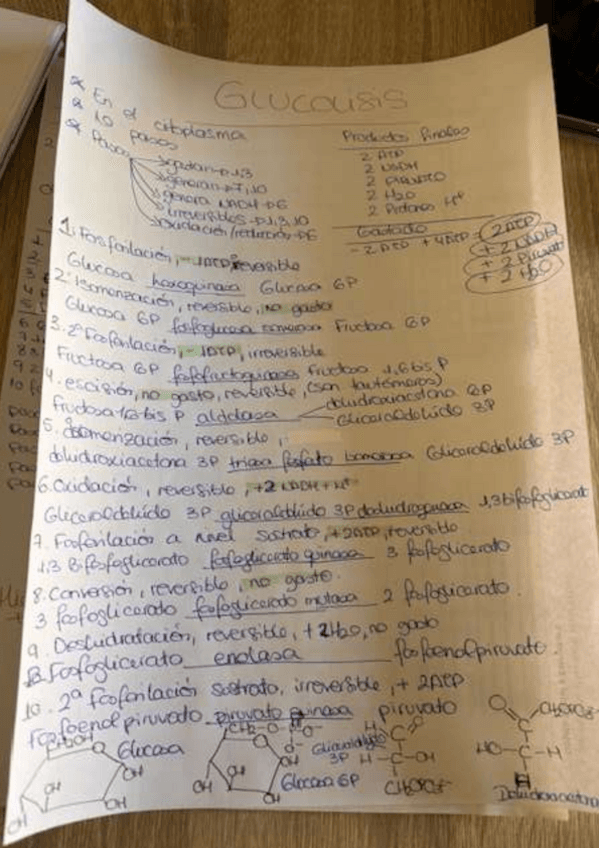 GLUCOLISIS
* En el citoplasma
* 10 pasos
* Pasos
gastan → 1,3
generan → 7,10
genera NADH → 6
irreversibles → 1,3,10
oxidación/reducción → 6
Productos finales
2 ATP
2 NADH
2 PIRUVATO
2 H2O
2 Protones H+
Gastado
- 2 ATP + 4 ATP → 2 ATP
+ 2 NADH
+ 2 Piruvato
+ 2 H2O
1. Fosforilación, - 1ATP,
Glucosa hexoquinasa Glucosa 6P
2. Isomerización, reversible, no gasto
Glucosa 6P fosfoglucosa isomerasa Fructosa 6P
3. 2ª Fosforilación, - 1ATP, irreversible
Fructosa 6P fosfofructoquinasa Fructosa 1,6 bis P
4. escisión, no gasto, reversible, (son tautómeros)
Fructosa 1,6 bis P aldolasa dihidroxiacetona 3P
Gliceraldehído 3P
5. Isomerización, reversible,
dihidroxiacetona 3P triosa fosfato isomerasa Gliceraldehído 3P
6. Oxidación, reversible, +2 NADH + H+
Gliceraldehído 3P gliceraldehído 3P deshidrogenasa 1,3 bifosfoglicerato
7. Fosforilación a nivel sustrato, + 2ATP, reversible
1,3 Bifosfoglicerato fosfoglicerato quinasa 3 fosfoglicerato
8. Conversión, reversible, no gasto.
3 fosfoglicerato fosfoglicerato mutasa 2 fosfoglicerato.
9. Deshidratación, reversible, + 2H2O, no gasto
Fosfoglicerato enolasa fosfoenolpiruvato.
10. 2ª fosforilación sustrato, irreversible, + 2ATP
Fosfoenol piruvato piruvato quinasa piruvato
Glucosa
OH
OH
OH
OH
Glucosa 6P
OH
OH
OH
Gliceraldehído
3P
H
C
O
H-C-OH
CH2OPO3
O
C
CH2OPO3
HO-C-H
H
Dihidroxiacetona